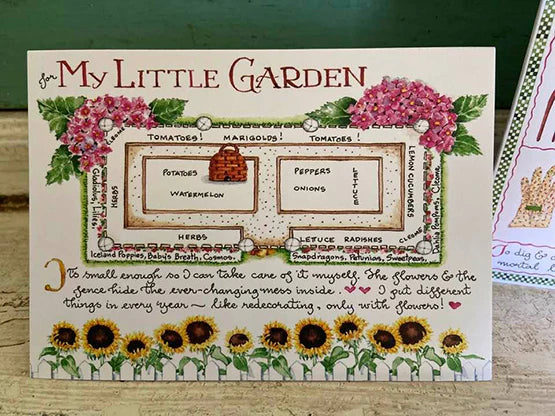 for MY LITTLE GARDEN
TOMATOES! MARIGOLDS! TOMATOES!
CLEOME
Gladiolus, Lilies,
HERBS
POTATOES
WATERMELON
PEPPERS
ONIONS
LETTUCE
LEMON CUCUMBERS
Dahlia Pompoms, Cleome,
HERBS
LETUCE RADISHES
CLEOME
Iceland Poppies, Baby's Breath, Cosmos,
Snapdragons, Petunias, Sweetpeas,
It's small enough so I can take care of it myself. The flowers & the
fence hide the ever-changing mess inside. ♥♥ I put different
things in every year ~ like redecorating, only with flowers! ♥
To dig &
mortal